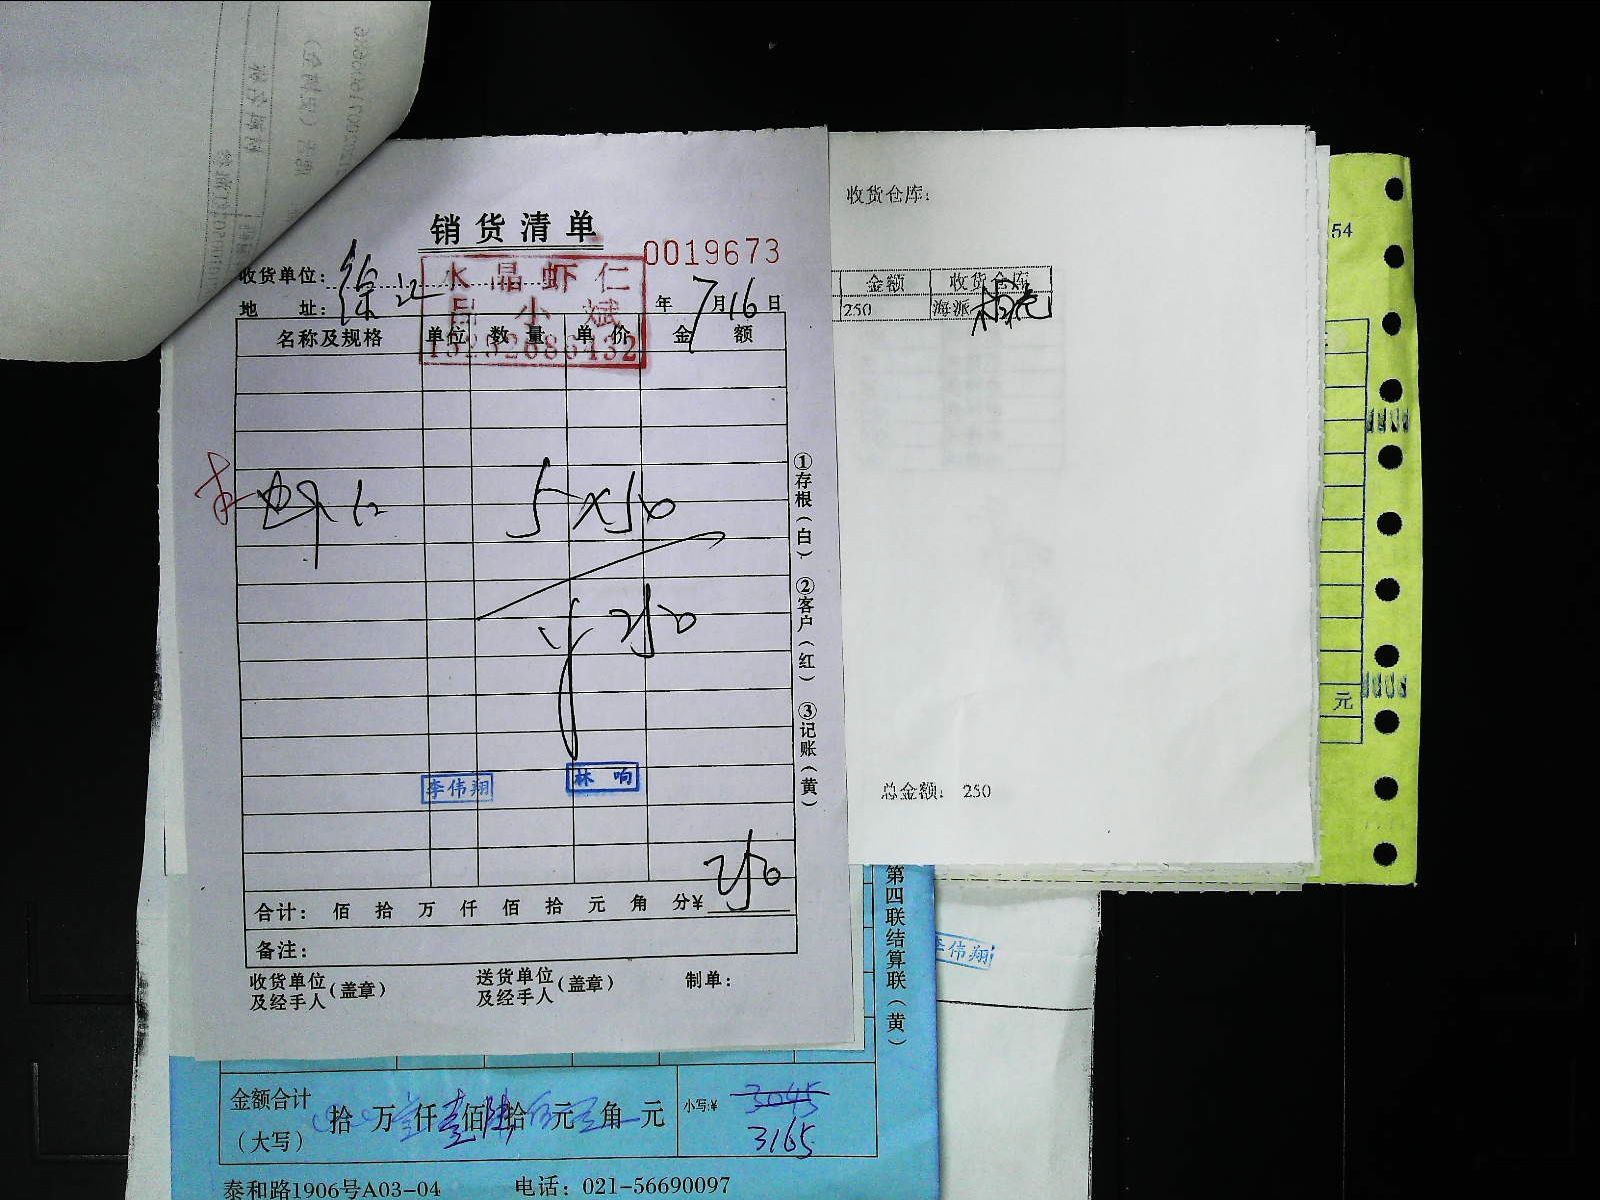 销货清单
0019673
收货单位：徐江
水晶虾仁
吕小斌
地 址：
年7月16日
名称及规格 单位 数量 单价 金额
虾仁 5×50
¥250
李伟翔 林响
合计： 佰 拾 万 仟 佰 拾 元 角 分¥ 250
备注：
收货单位及经手人（盖章）
送货单位及经手人（盖章）
制单：
①存根（白） ②客户（红） ③记账（黄）
收货仓库：
金额 收货仓库
250 海派
总金额： 250
54
元
第四联结算联（黄）
李伟翔
金额合计（大写） 拾 万 仟壹佰陆拾 元 角 元
小写：¥ 3045
3165
泰和路1906号A03-04 电话：021-56690097